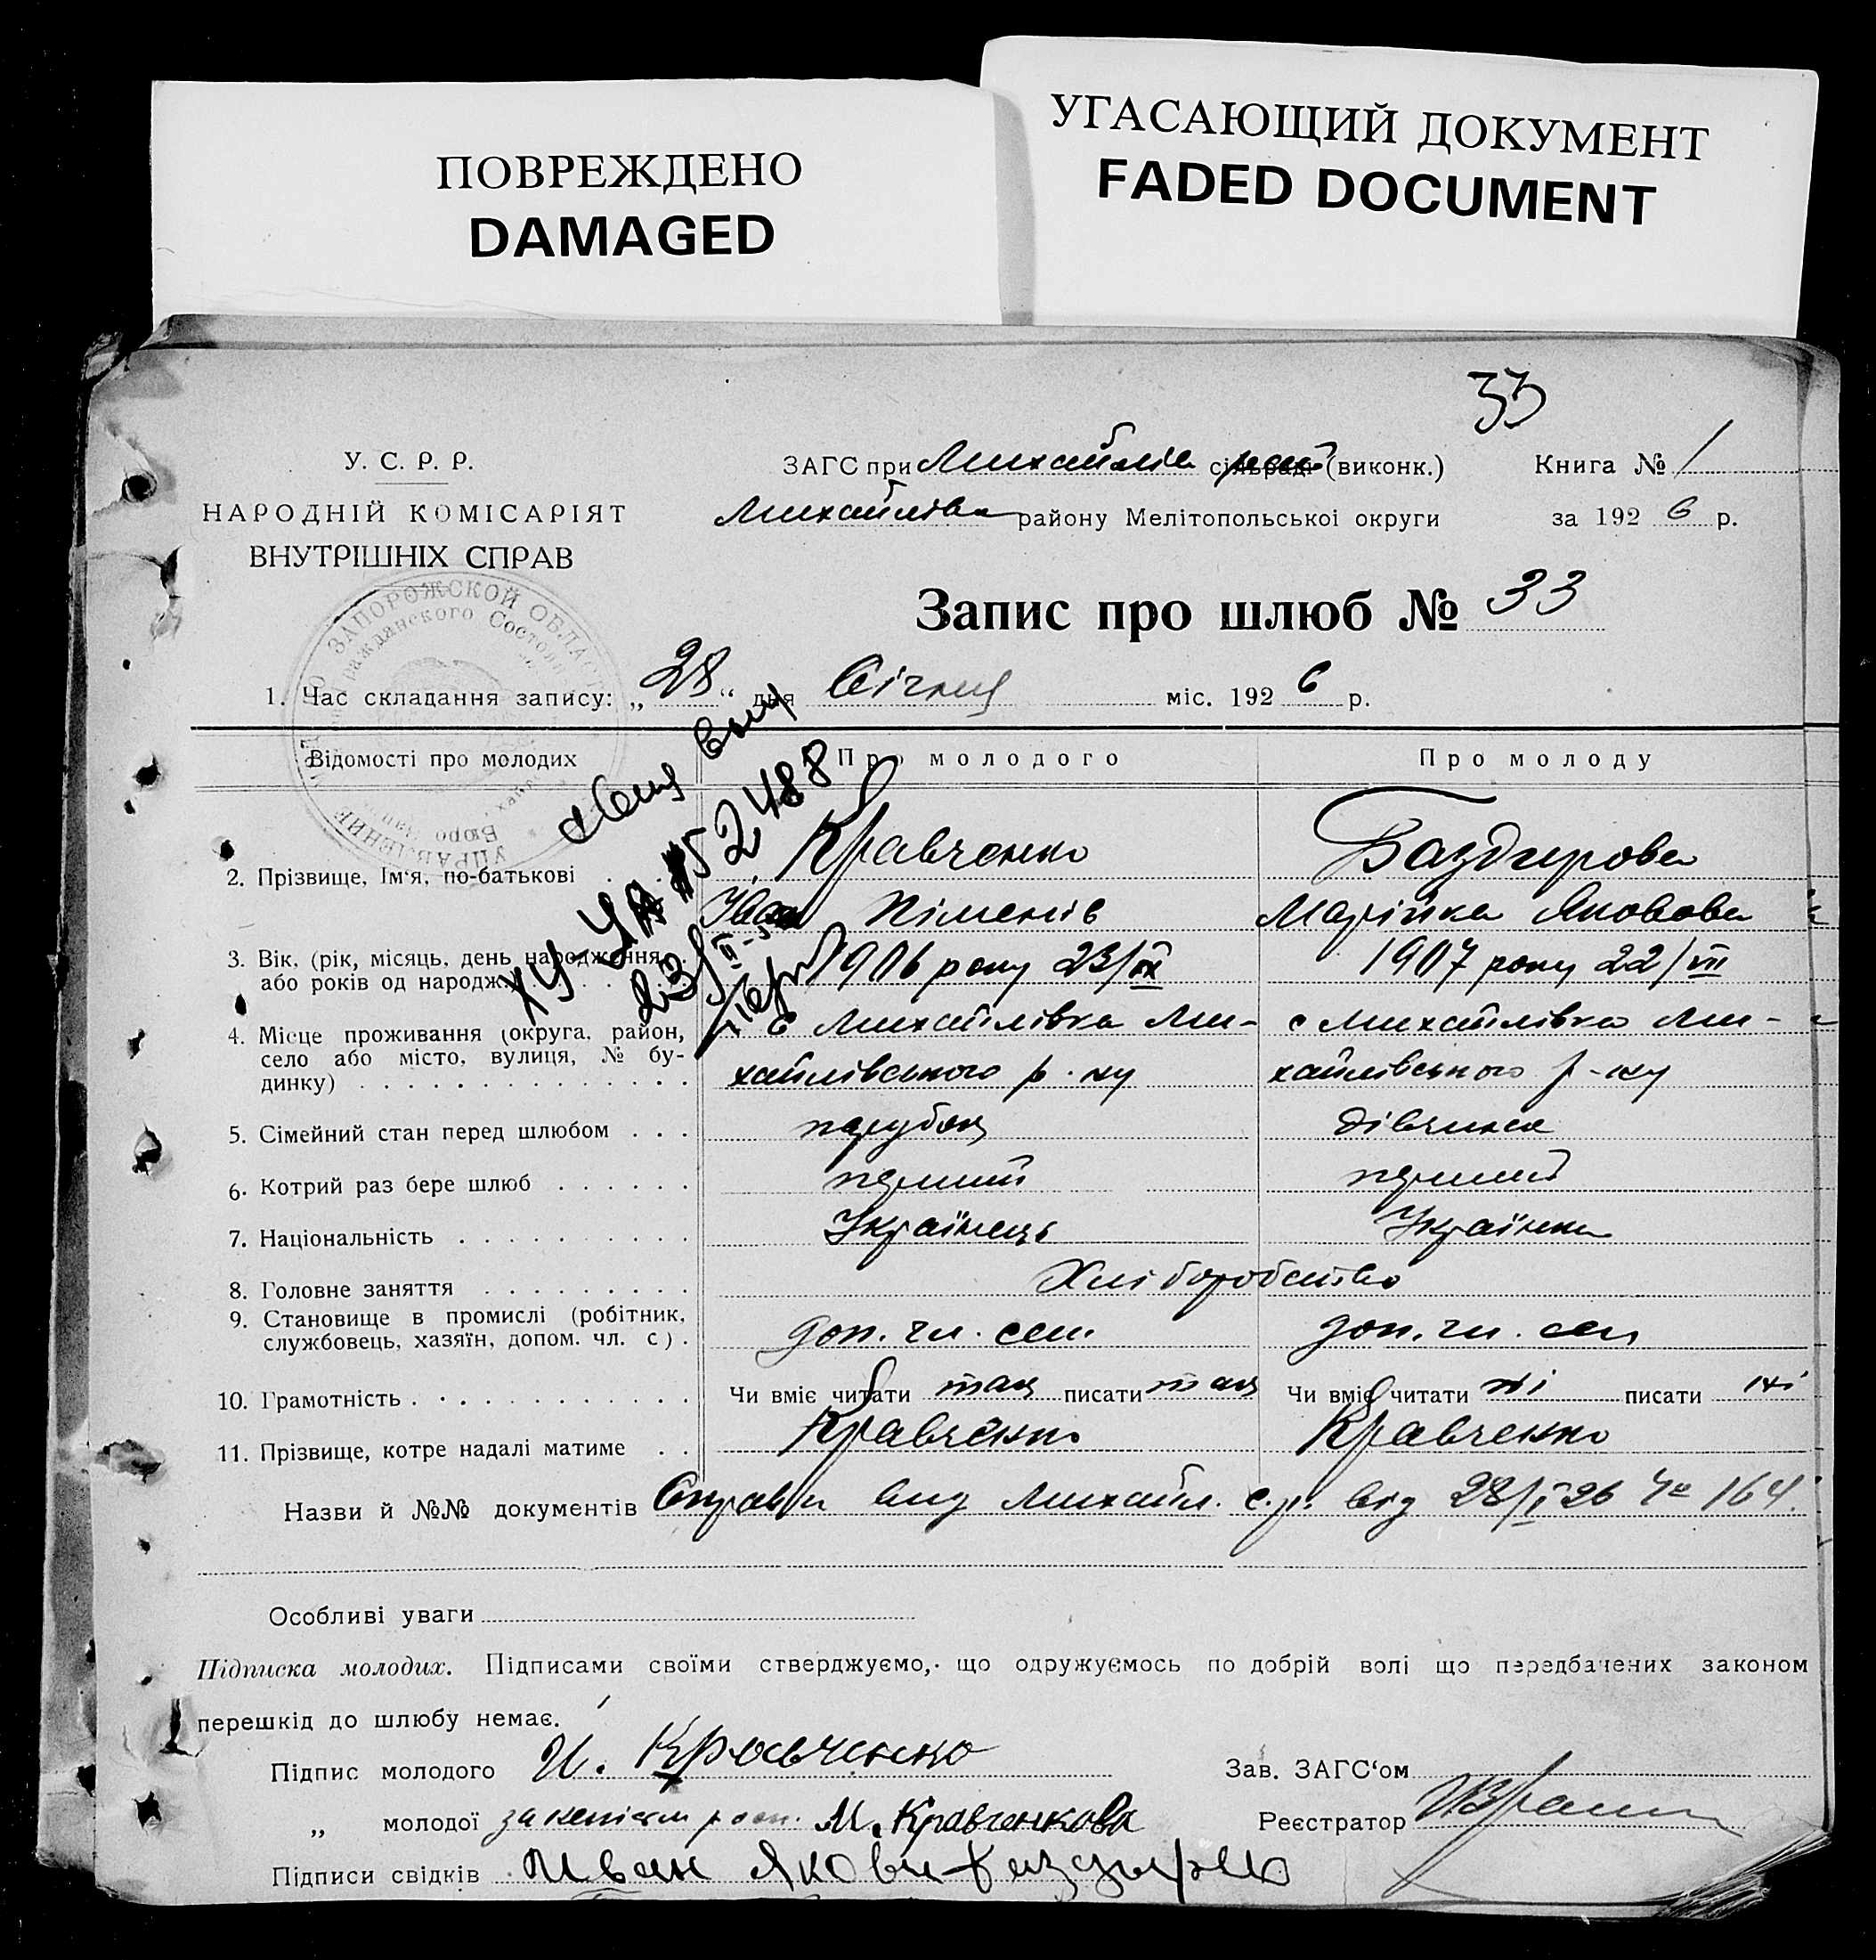 ПОВРЕЖДЕНО
DAMAGED
УГАСАЮЩИЙ ДОКУМЕНТ
FADED DOCUMENT
33
У. С. Р. Р.
НАРОДНІЙ КОМІСАРІЯТ
ВНУТРІШНІХ СПРАВ
ЗАГС при Михайлів сільраді (виконк.) Книга № 1
Михайлівка району Мелітопольської округи за 1926 р.
Запис про шлюб № 33
ЗАПОРОЖСКОЙ ОБЛАСТИ
УПРАВЛЕНИЕ
Бюро
1. Час складання запису: „28“ дня Січня міс. 1926 р.
Відомості про молодих Про молодого Про молоду
ХУ-УА 52488
2. Прізвище, Ім'я, по-батькові Кравченко Баздирова
Іван Піменів Марійка Яковова
3. Вік, (рік, місяць, день народження, 1906 року 23/IX 1907 року 22/VII
або років од народж.)
4. Місце проживання (округа, район, с Михайлівка Ми- с Михайлівка Ми-
село або місто, вулиця, № бу-
динку) хайлівського р-ну хайлівського р-ну
5. Сімейний стан перед шлюбом парубок дівчина
6. Котрий раз бере шлюб перший перший
7. Національність Українець Українка
8. Головне заняття Хліборобство
9. Становище в промислі (робітник,
службовець, хазяїн, допом. чл. с) доп. чл. сем. доп. чл. сем
10. Грамотність Чи вміє читати так писати так Чи вміє читати ні писати ні
11. Прізвище, котре надалі матиме Кравченко Кравченко
Назви й №№ документів Справка вид Михайл. с.р. від 28/I 26 № 164.
Особливі уваги
Підписка молодих. Підписами своїми стверджуємо, що одружуємось по добрій волі що передбачених законом
перешкід до шлюбу немає.
Підпис молодого И. Кравченко Зав. ЗАГС'ом
„ молодої за М. Кравченкова Реєстратор
Підписи свідків Иван